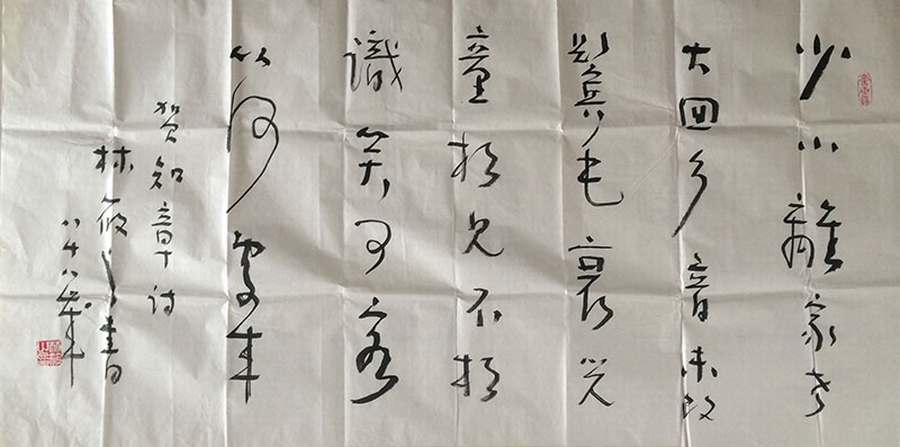 少小離家老
大回乡音未改
鬓毛衰儿
童相见不相
識笑问客
从何處来
贺知章诗
林筱之书
八十八岁